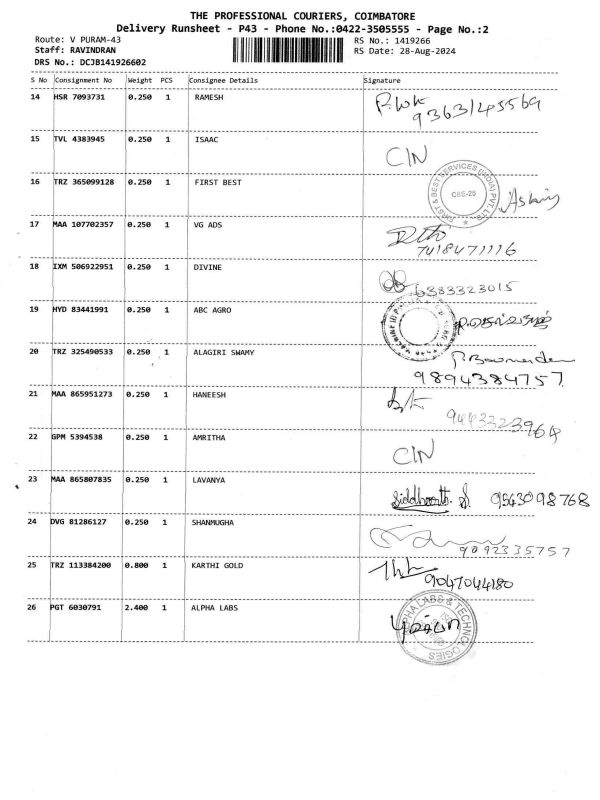 THE PROFESSIONAL COURIERS, COIMBATORE
Delivery Runsheet - P43 - Phone No.:0422-3505555 - Page No.:2
Route: V PURAM-43 RS No.: 1419266
Staff: RAVINDRAN RS Date: 28-Aug-2024
DRS No.: DCJB141926602
S No Consignment No Weight PCS Consignee Details Signature
14 HSR 7093731 0.250 1 RAMESH
9363145569
15 TVL 4383945 0.250 1 ISAAC
C/N
16 TRZ 365099128 0.250 1 FIRST BEST
FIRST & BEST SERVICES (INDIA) PVT. LTD.
CBE-25
17 MAA 107702357 0.250 1 VG ADS
7418471116
18 IXM 506922951 0.250 1 DIVINE
6383323015
19 HYD 83441991 0.250 1 ABC AGRO
20 TRZ 325490533 0.250 1 ALAGIRI SWAMY
9894384757
21 MAA 865951273 0.250 1 HANEESH
9443323964
22 GPM 5394538 0.250 1 AMRITHA
C/N
23 MAA 865807835 0.250 1 LAVANYA
Siddharth. S. 9543098768
24 DVG 81286127 0.250 1 SHANMUGHA
9092335757
25 TRZ 113384200 0.800 1 KARTHI GOLD
9047044180
26 PGT 6030791 2.400 1 ALPHA LABS
ALPHA LABS & TECHNOLOGIES